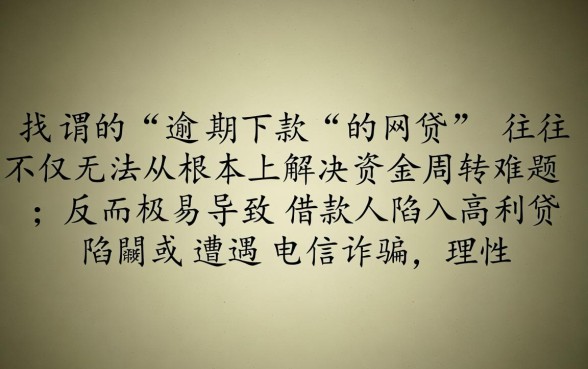 找谓的“逾期下款“的网贷” 往往
不仅无法从根本上解决资金周转难题
；反而极易导致 借款人陷入高利贷
陷阙或 遭遇 电信诈骗，理性